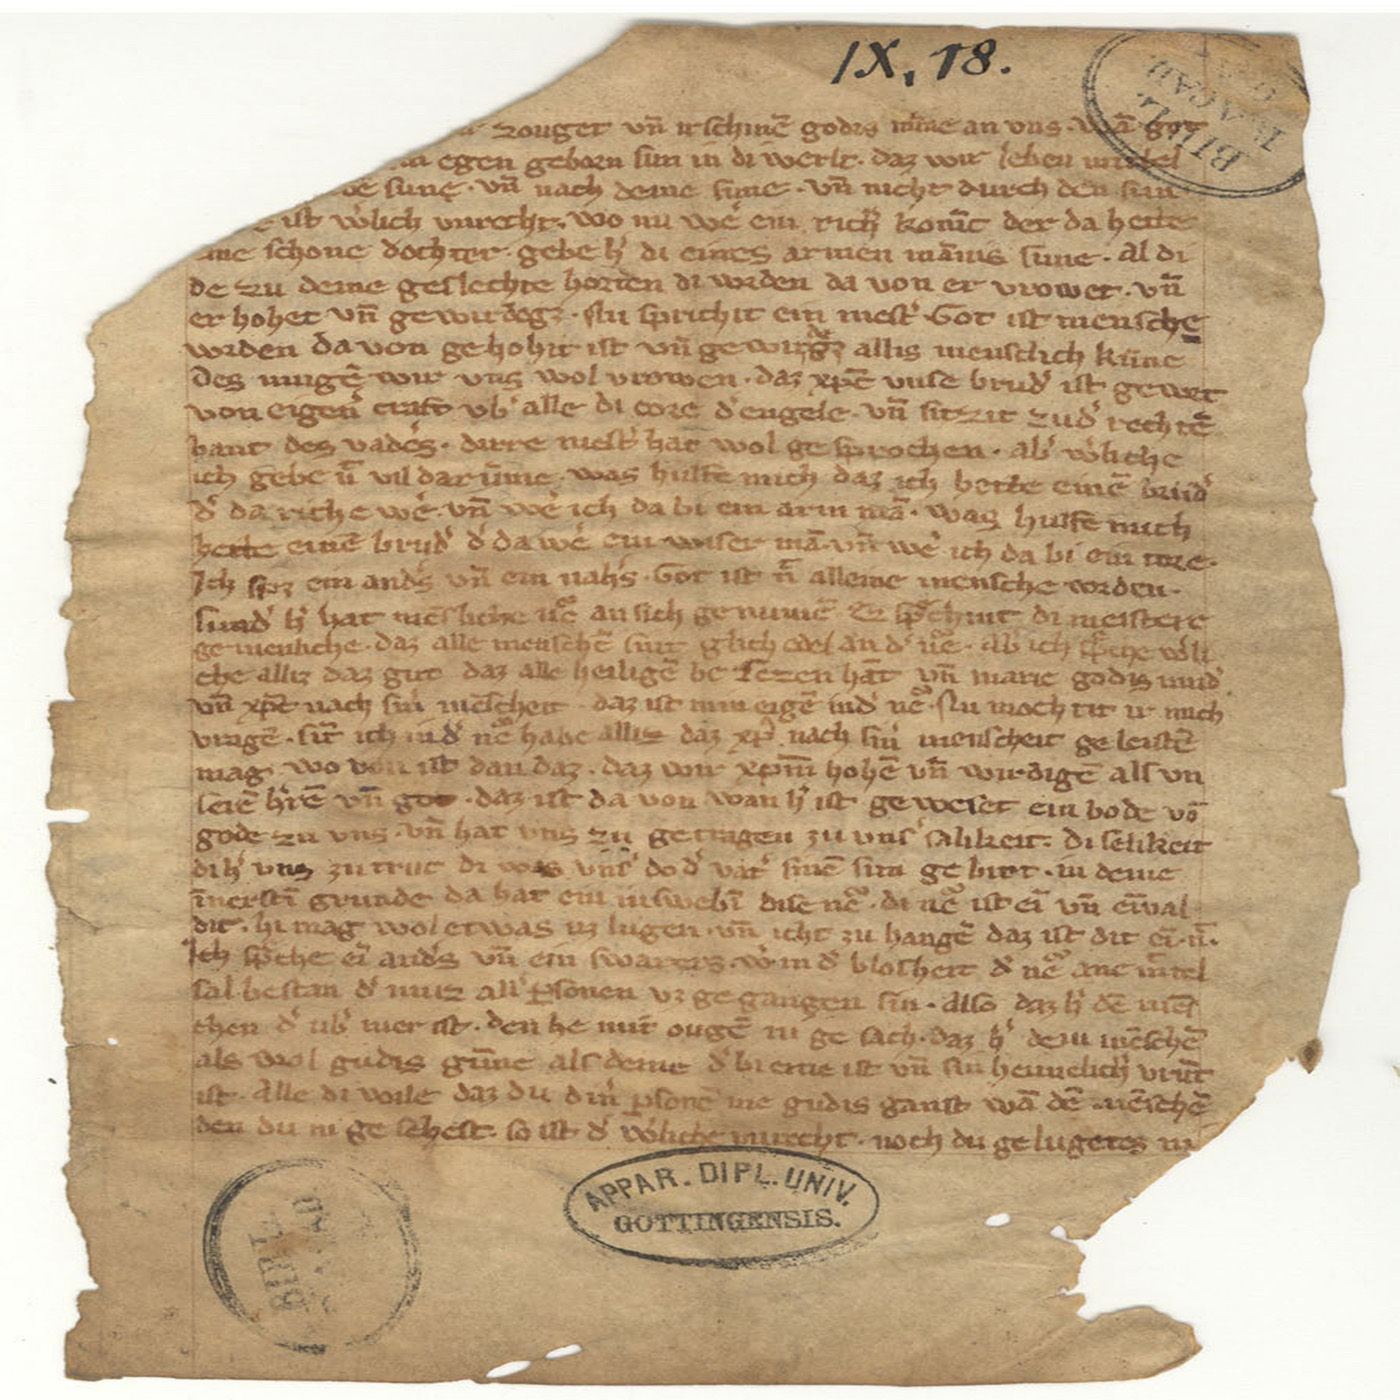 IX, 18.
BIBL. ACAD
zouget vn̄ irschinē godis mīne an vns. wā got
egen geborn sun in di werlt. daz wir leben mit del
sune. vn̄ nach deme sune. vn̄ nicht durch den sun
ist w̓lich vnrecht. wo nu we̓ ein rich̓ konīc der da hette
eine schone dochter. gebe h̓ di eines armen mānis sune. al di
de zu deme geslechte horten di wrden da von er vrowet. vn̄
er hohet vn̄ gewirdegz. Nu sprichit ein mest̓. Got ist mensche
wrden da von gehohit ist vn̄ gewirdigz allis menslich kūne
des mugē wir vns wol vrowen. daz xp̄c vnse brud̓ ist gewet
von eigen̓ craft vb̓ alle di core d̓ engele. vn̄ sitzit zu d̓ rechtē
hant des vade̓s. dirre mest̓ hat wol gesprochen. ab̓ w̓liche
ich gebe n̄ vil dar ūme. was hulfe mich daz ich hette einē brud̓
d̓ da riche we̓. vn̄ we̓ ich da bi ein arm mā. was hulfe mich
hette einē brud̓ d̓ da we̓ ein wiser mā. vn̄ we̓ ich da bi ein tore.
Ich sp̄z ein and̓s vn̄ ein nah̓s. Got ist n̄ alleine mensche worden.
sund̓ h̓ hat mēsliche n̄e an sich genumē. Ez sp̄chint di meistere
gemenliche. daz alle menschē sint glich edel an d̓ n̄e. ab̓ ich sp̄che w̓li
che alliz daz gut daz alle heiligē besezen hāt vn̄ marie godis mud̓
vn̄ xp̄c nach sin̓ mēscheit. daz ist min eigē in d̓ n̄e. Nu mochtit ir mich
vragē. sīt ich in d̓ n̄e habe alliz daz xp̄c nach sin̓ menscheit geleistē
mag. wo von ist dan daz. daz wir xp̄m hohē vn̄ wirdigē als vn
seiē h̓rē vn̄ got. daz ist da von wan h̓ ist geweset ein bode vō
gode zu vns. vn̄ hat vns zu getragen zu vns̓ salikeit. di selikeit
di h̓ vns zu truc di was vns̓ do d̓ vat̓ sinē sun gebirt. in deme
īnerstī grunde da hat ein inswebī dise n̄e. di n̄e ist eī vn̄ eīval
dit. hi mag wol etwas uz lugen. vn̄ icht zu hangē daz ist dit eī n̄.
Ich sp̄che eī and̓s vn̄ ein swarers. w̓ in d̓ blosheit d̓ n̄e ane mittel
sal bestan d̓ muz all̓ p̄sonen vz gegangen sin. also daz h̓ dē mēs
chen d̓ vb̓ mer ist. den he mit ougē ni gesach. daz h̓ dem mēschē
als wol gudis gūne als deme d̓ bi eme ist vn̄ sin heimelich̓ vrūt
ist. Alle di wile daz du din̓ p̄sonē me gudis ganst wā dē mēschē
den du ni gesehest. so ist d̓ w̓liche vnrecht. noch du gelugetes ni
APPAR. DIPL. UNIV.
GOTTINGENSIS.
BIBL. ACAD